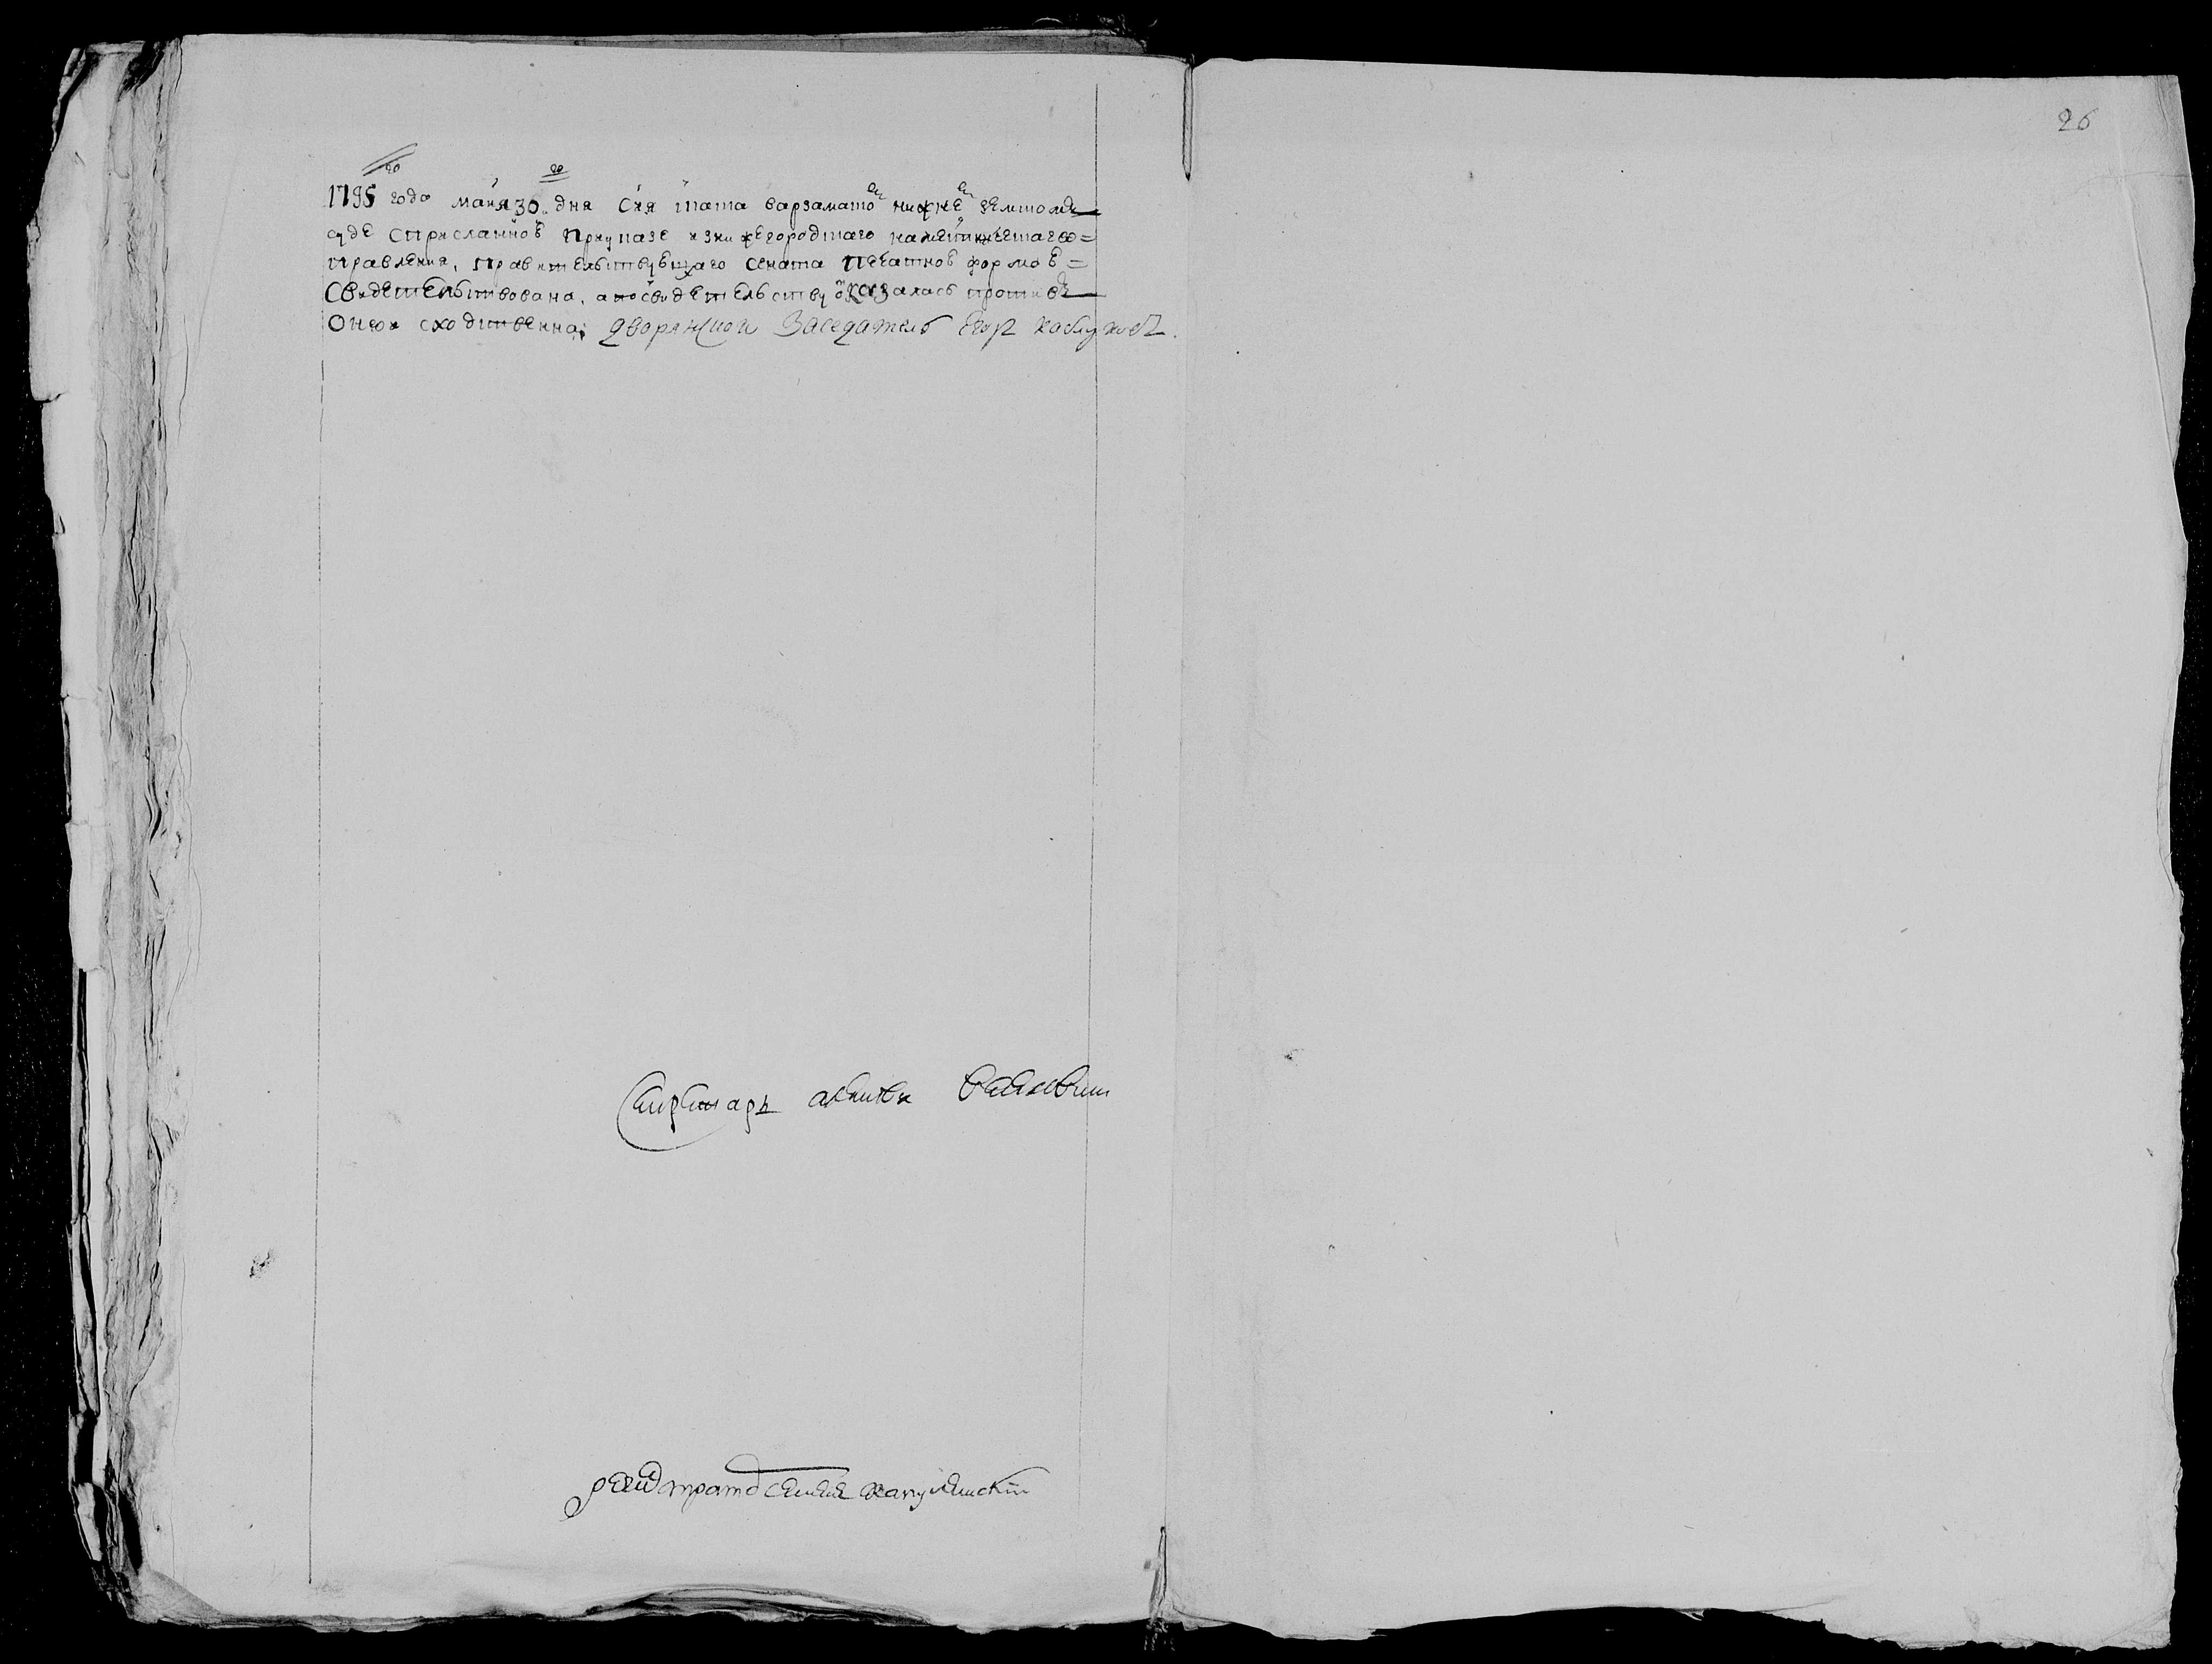 26
1795го года маия 30го дня сия скаска варзамаском нижнем земском
суде сприсланной приуказе изнижегородскаго наместническаго
правления, правительствующаго сената печатной формой
свидетельствована, а посвидетельству оказалась противъ
оной сходственна; дворянской Заседатель Егор
Секретарь
регистратор Семен